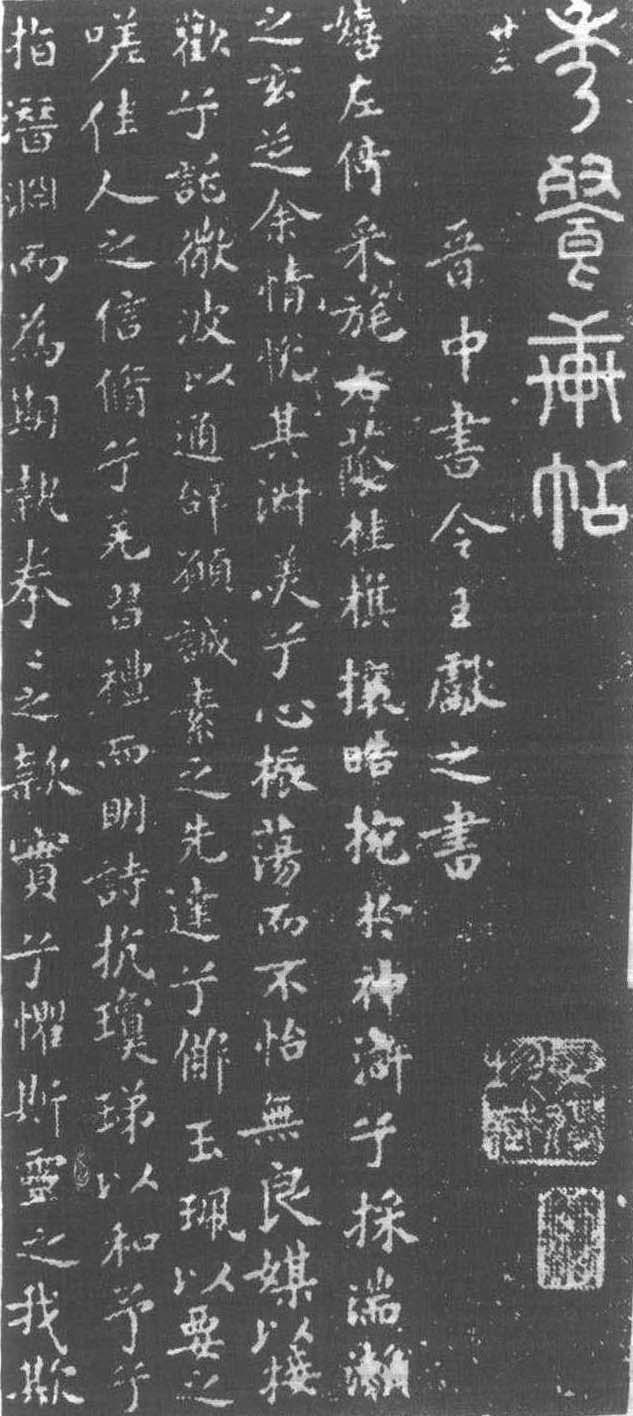 秀餐軒帖
廿三
晉中書令王獻之書
嬉左倚采旄右蔭桂旗攘皓捥於神滸兮採湍瀨
之玄芝余情悅其淑美兮心振蕩而不怡無良媒以接
歡兮託微波以通辭願誠素之先達兮解玉珮以要之
嗟佳人之信脩兮羌習禮而明詩抗瓊珶以和予兮
指潛淵而為期執拳〻之款實兮懼斯靈之我欺